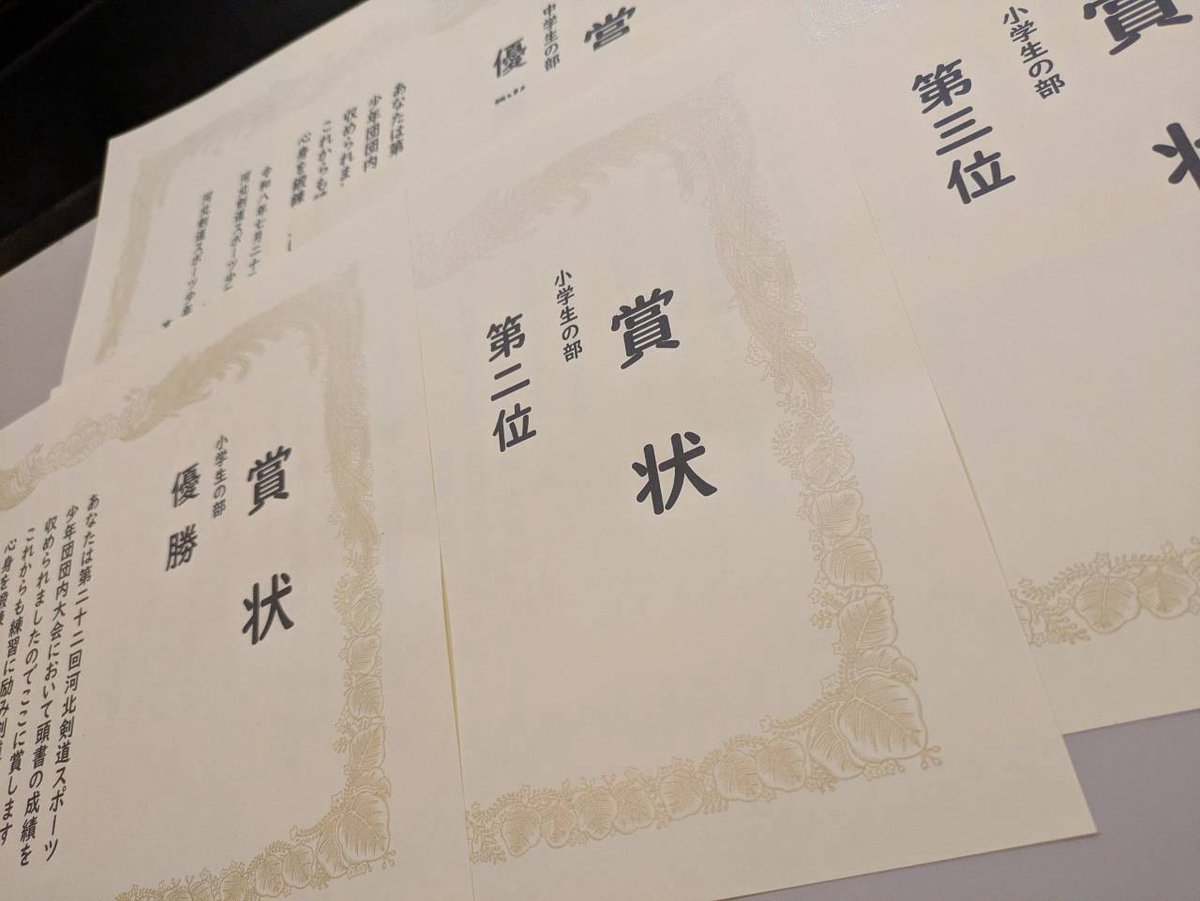 賞
中学生の部
優
あなたは第
少年団団内
収められま
これからも
心身を鍛錬
令和八年七月二十
河北剣道スポーツ少
河北剣道スポーツ少年
賞状
小学生の部
第三位
賞状
小学生の部
第二位
賞状
小学生の部
優勝
あなたは第二十二回河北剣道スポーツ
少年団団内大会において頭書の成績を
収められましたのでここに賞します
これからも練習に励み剣道
心身を鍛錬